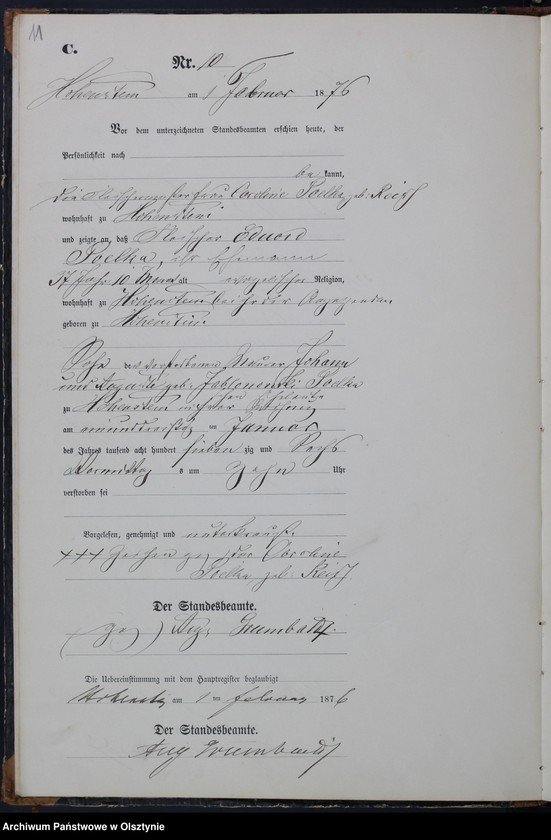 11
C.
Nr. 10
Hohenstein am 1 Februar 1876
Vor dem unterzeichneten Standesbeamten erschien heute, der
Persönlichkeit nach
be kannt,
die Fleischermeisterfrau Caroline Poelka geb. Reiß
wohnhaft zu Hohenstein
und zeigte an, daß Fleischer Eduard
Poelka, ihr Ehemann
37 Jahr 10 Monat alt evangelischer Religion,
wohnhaft zu Hohenstein bei der
geboren zu Hohenstein
Sohn des verstorbenen Maurer Johann
und Auguste geb. Jablonowski Poelka
zu Hohenstein in ihrer Wohnung
am einunddreißig ten Januar
des Jahres tausend acht hundert sieben zig und Sechs
Vormittag s um Zehn Uhr
verstorben sei
Vorgelesen, genehmigt und unterkreuzt.
+++ Zeichen der Caroline
Poelka geb. Reiß
Der Standesbeamte.
(gez) Aug.
Die Uebereinstimmung mit dem Hauptregister beglaubigt
Hohenstein am 1 ten Februar 1876
Der Standesbeamte.
Aug
Archiwum Państwowe w Olsztynie